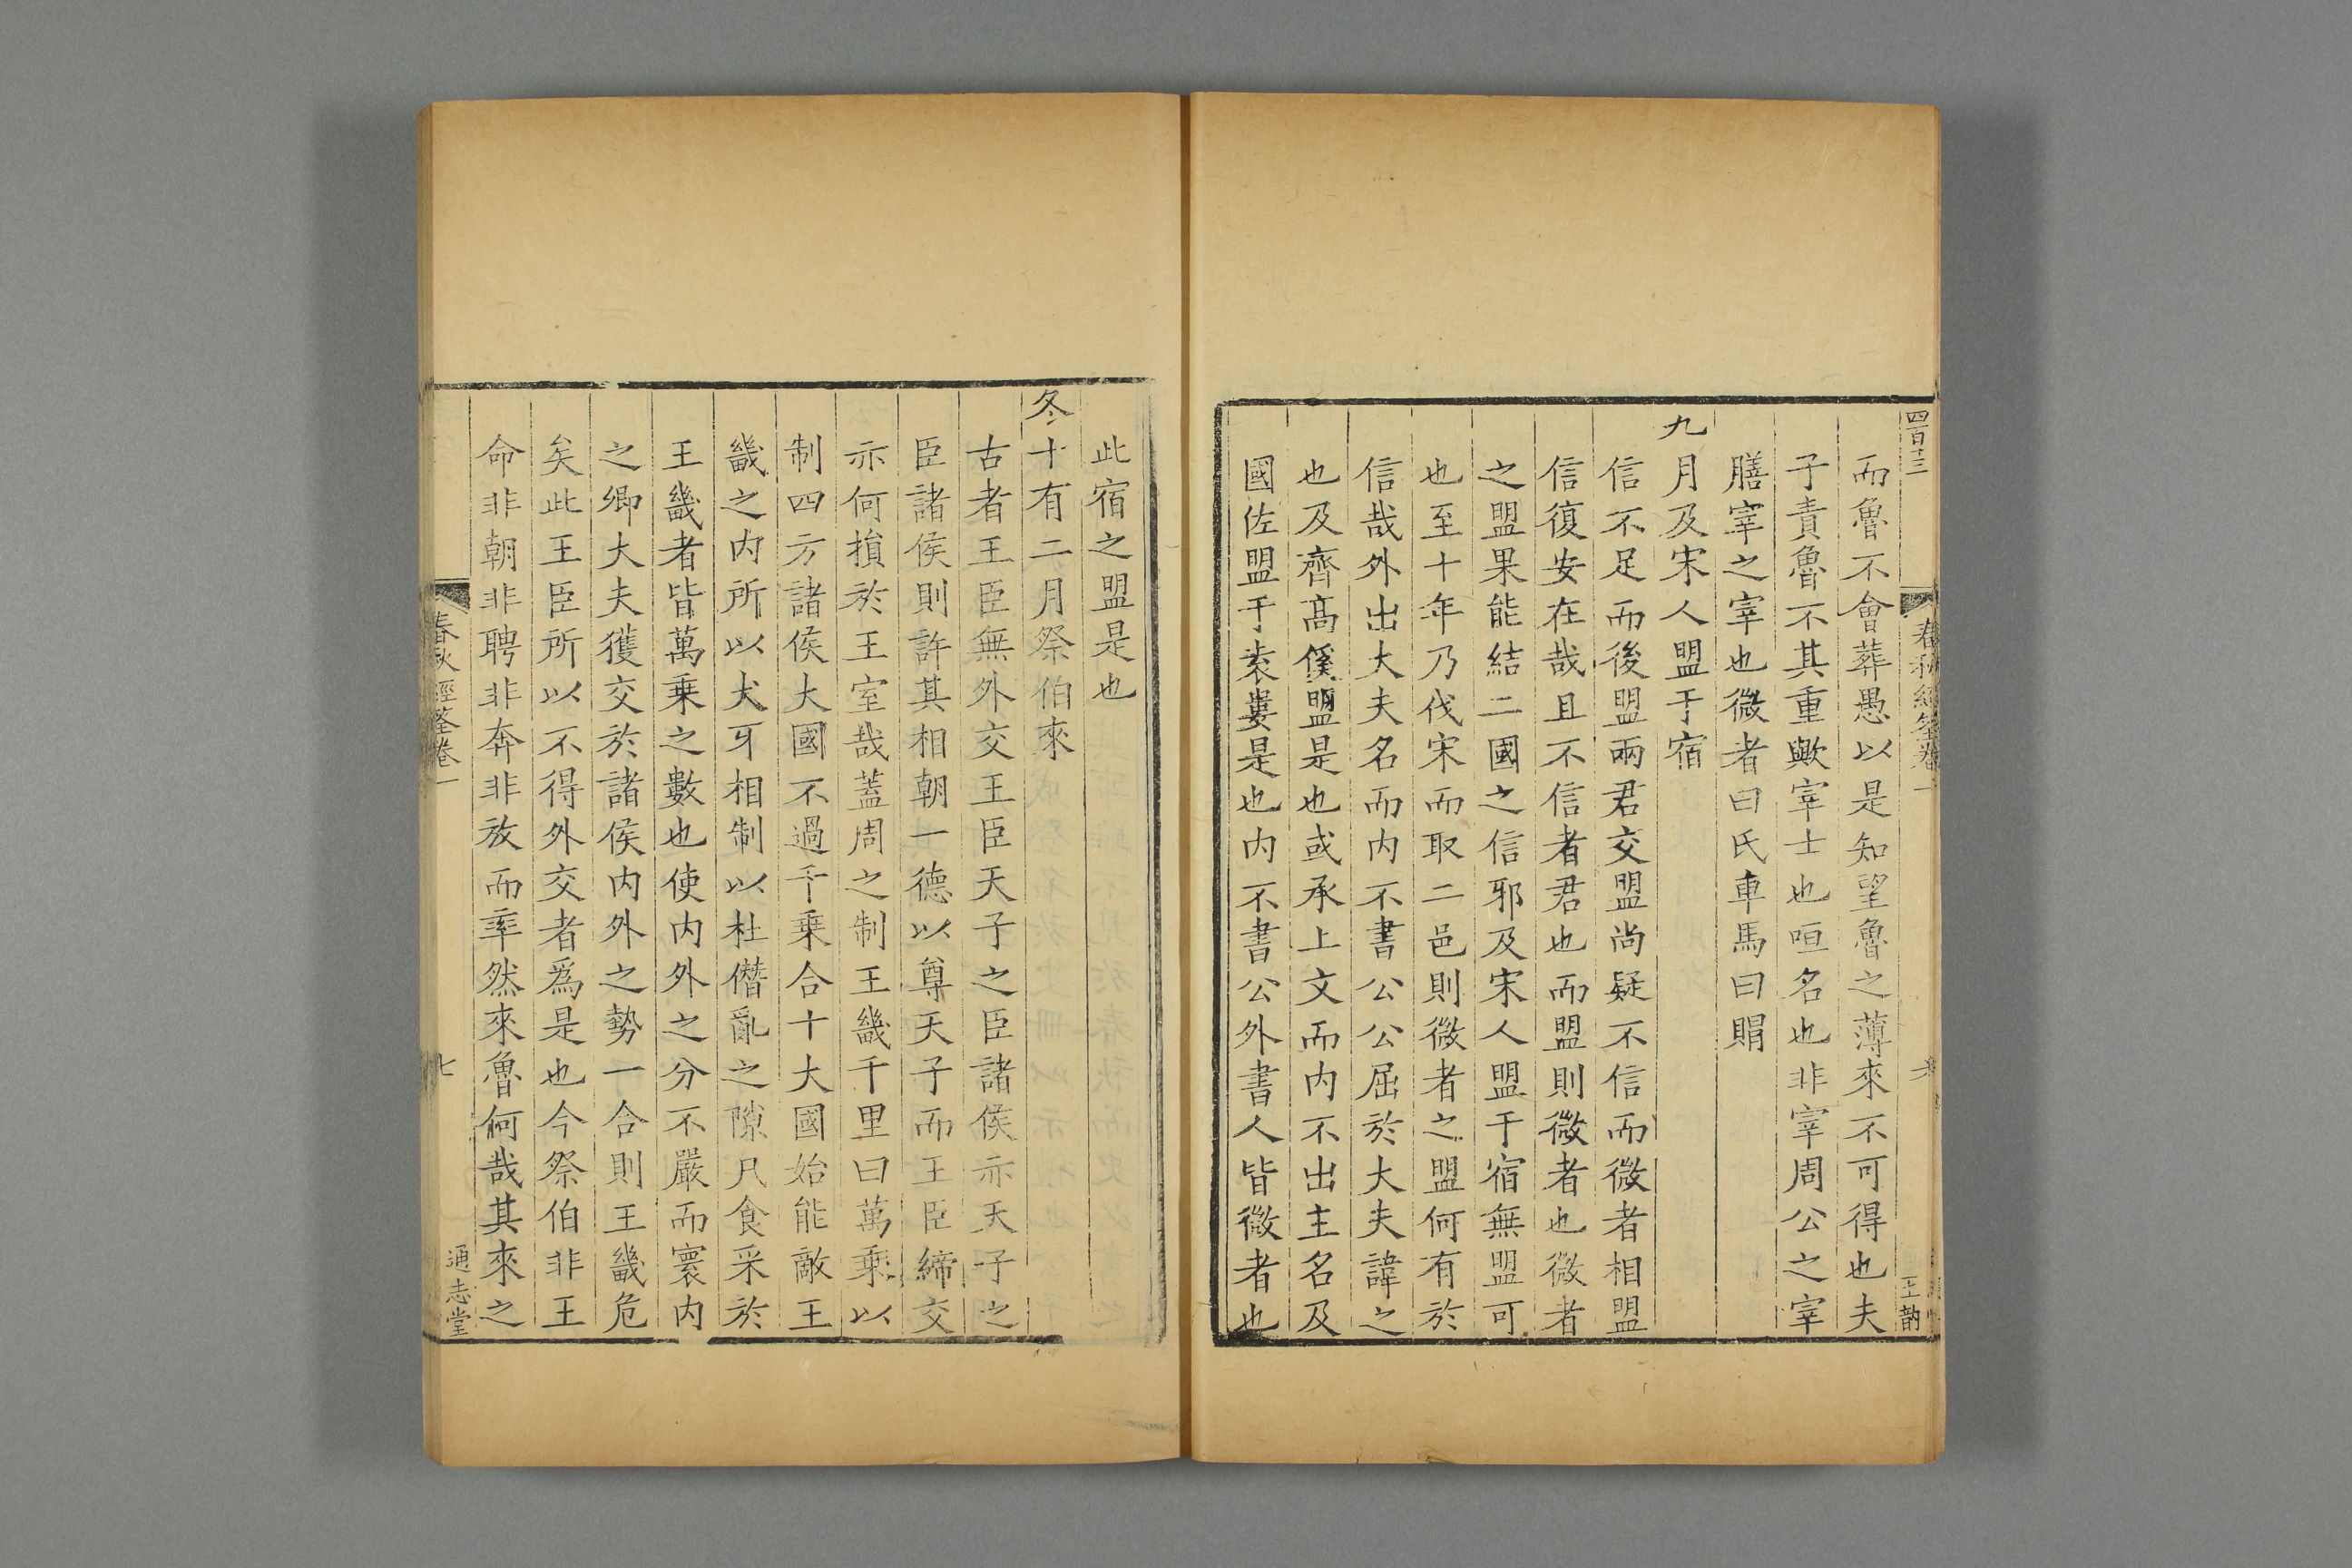 四百十三
春秋經筌卷一
王韵
而魯不會葬愚以是知望魯之薄來不可得也夫
子責魯不其重歟宰士也咺名也非宰周公之宰
膳宰之宰也微者曰氏車馬曰賵
九月及宋人盟于宿
信不足而後盟兩君交盟尚疑不信而微者相盟
信復安在哉且不信者君也而盟則微者也微者
之盟果能結二國之信邪及宋人盟于宿無盟可
也至十年乃伐宋而取二邑則微者之盟何有於
信哉外出大夫名而内不書公公屈於大夫諱之
也及齊高傒盟是也或承上文而内不出主名及
國佐盟于袁婁是也内不書公外書人皆微者也
此宿之盟是也
冬十有二月祭伯來
古者王臣無外交王臣天子之臣諸侯亦天子之
臣諸侯則許其相朝一德以尊天子而王臣締交
亦何損於王室哉蓋周之制王畿千里曰萬乗以
制四方諸侯大國不過千乗合十大國始能敵王
畿之内所以犬牙相制以杜僭亂之隙凡食采於
王畿者皆萬乗之數也使内外之分不嚴而寰内
之卿大夫獲交於諸侯内外之勢一合則王畿危
矣此王臣所以不得外交者爲是也今祭伯非王
命非朝非聘非奔非放而率然來魯何哉其來之
春秋經筌卷一
七
通志堂